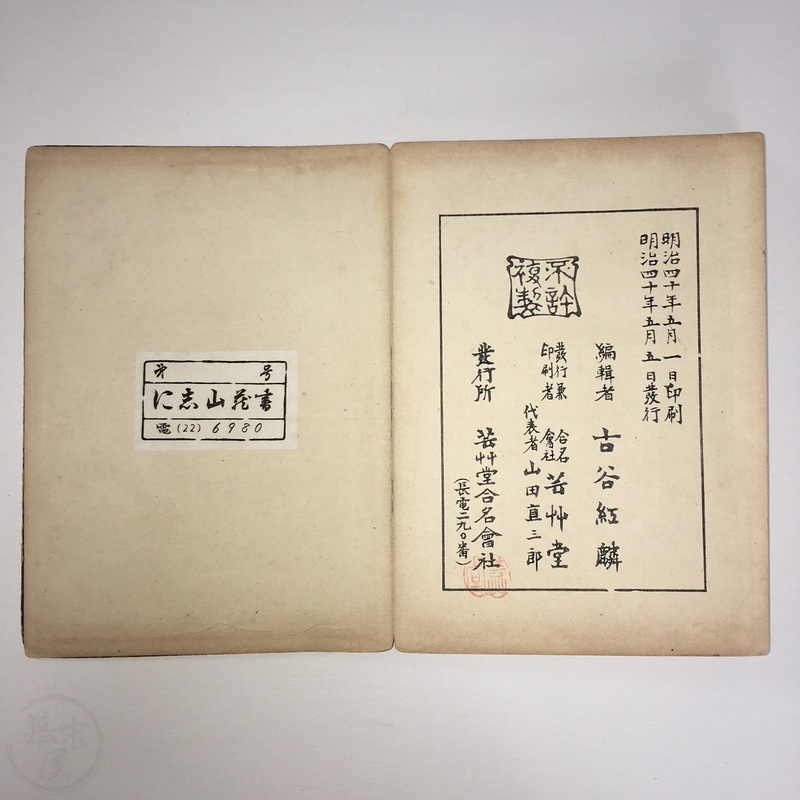 明治四十年五月一日印刷
明治四十年五月五日發行
不許
複製
編輯者 古谷紅麟
發行兼
印刷者
合名
會社
芸艸堂
代表者 山田直三郎
發行所 芸艸堂合名會社
(長電二九〇番)
第 号
に志山蔵書
電(22)6980
幕末
屋